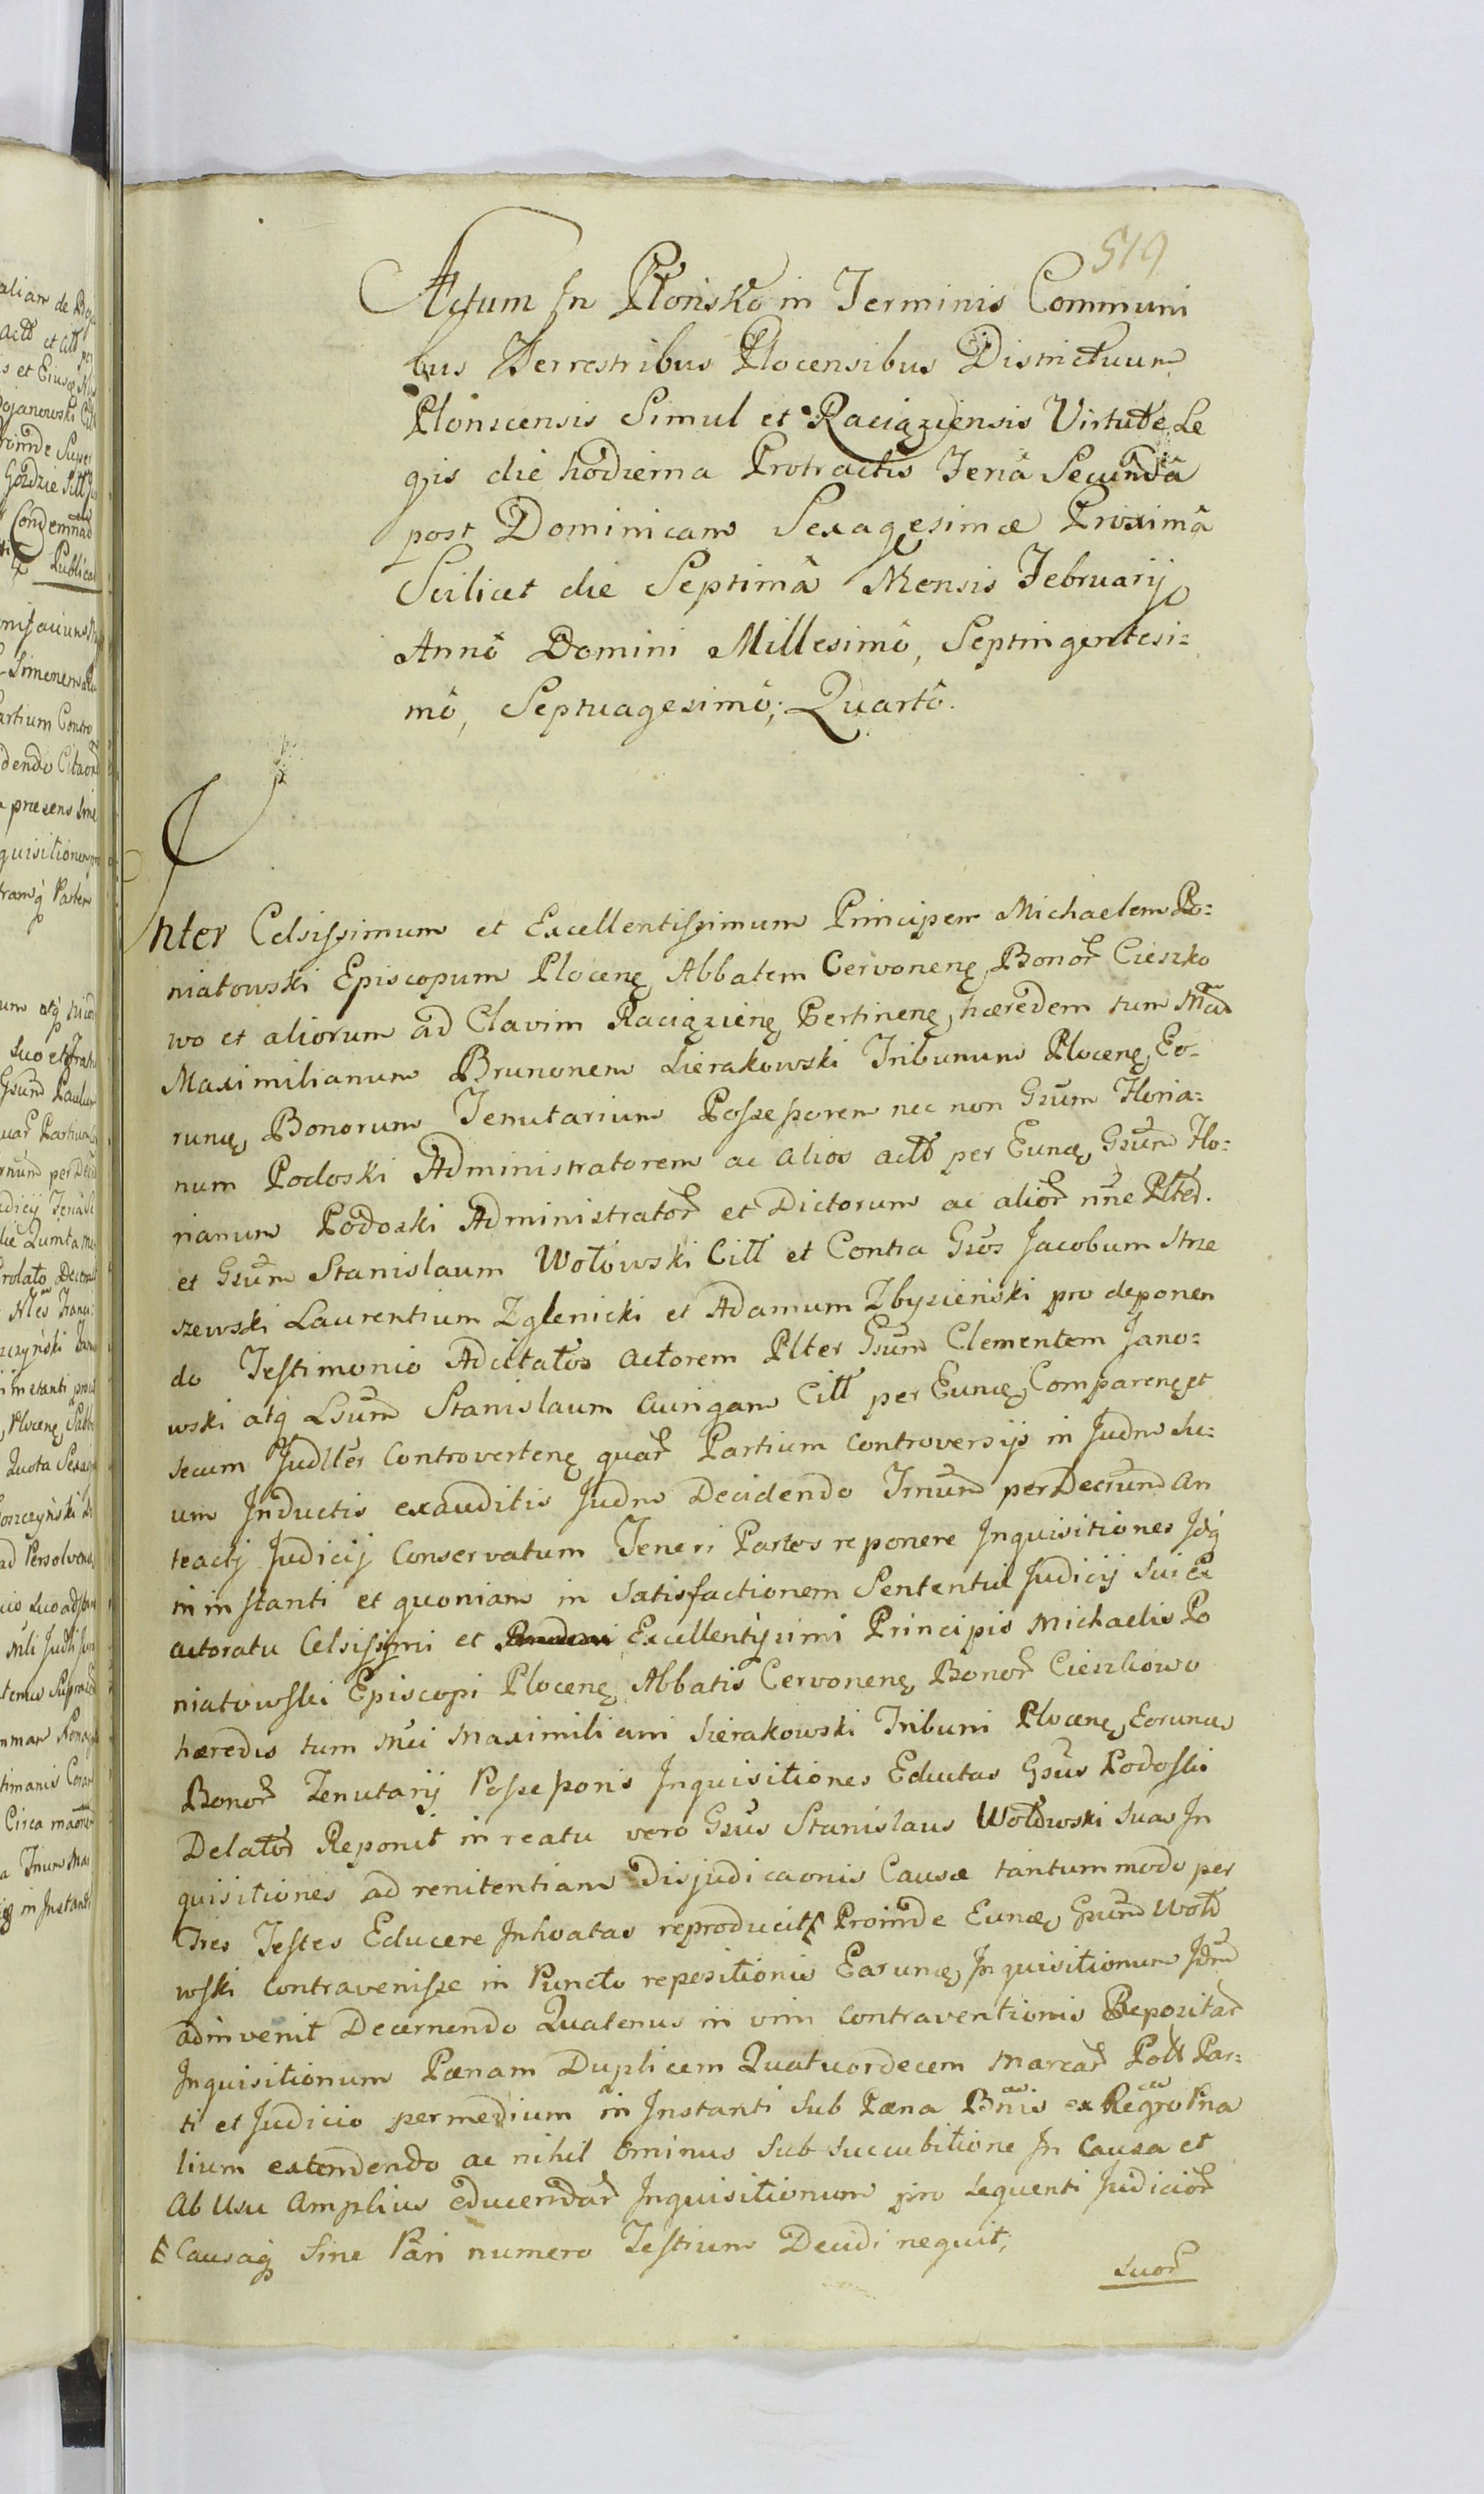 519
Actum In Płońsko in Terminis Communi
bus Terrestribus Plocensibus Districtuum
Plonscensis Simul et Raciąziensis Virtute Le
gis die hodierna Protractis Feriâ Secundâ
post Dominicam Sexagesimæ Proximâ
Scilicet die Septimâ Mensis Februarij
Annô Domini Millesimô, Septingentesi=
mô, Septuagesimô, Quartô.
Inter Celsissimum et Excellentissimum Principem Michaelem Po=
niatowski Episcopum Plocenę Abbatem Cervonenę Bonor Cieszko
wo et aliorum ad Clavim Raciązienę Pertinenę hæredem tum Mcum
Maximilianum Brunonem Sierakowski Tribunum Plocenę Eo-
rumę Bonorum Tenutarium Possessorem nec non Gsum Floria=
num Podoski Administratorem ac alios actt per Eunę Gsum Flo=
rianum Podoski Administrator et Dictorum ac alior nne Plted.
et Gsum Stanislaum Wołowski Citt et Contra Gsos Jacobum Strze
szewski Laurentium Zglenicki et Adamum Zbysieński pro deponen
do Testimonio Adcitatos actorem Plter Gsum Clementem Jano=
wski atq Lsum Stanislaum Aurigam Citt per Eunę Comparenę et
secum Judlter Controvertenę quar Partium controversijs in Judm Su=
um Inductis exauditis Judm Decidendo Trnum per Decrum An
teacti Judicij Conservatum Teneri Partes reponere Inquisitiones Idq
in instanti et quoniam in Satisfactionem Sententiæ Judicij Sui Ex
actoratu Celsissimi et Excellentissimi Principis Michaelis Po
niatowski Episcopi Plocenę Abbatis Cervonenę Bonor Cieszkowo
hæredis tum Mci Maximiliani Sierakowski Tribuni Plocenę Eorunę
Bonor Tenutarij Possessoris Inquisitiones Eductas Gsus Podoski
Delator Reponit in reatu vero Gsus Stanislaus Wołowski suas In
quisitiones ad renitentiam Disjudicaonis Causæ tantummodo per
Tres Testes Educere Inhoatas reproducit Proinde Eunę Gsum Woło
wski contravenisse in Puncto repositionis Earunę Inquisitionum Jdm
adinvenit Decernendo Quatenus in vim contraventionis Repositar
Inquisitionum Pænam Duplicem Quatuordecem Marcar Poll Par=
ti et Judicio per medium in Instanti sub Pæna Bnis ex Regro Pna
lium extendendo ac nihil ominus Sub succubitione In Causa et
Ab Usu Amplius educendar Inquisitionum pro sequenti Judicior
Causaq Sine Pari numero Testium Decidi nequit,
suor